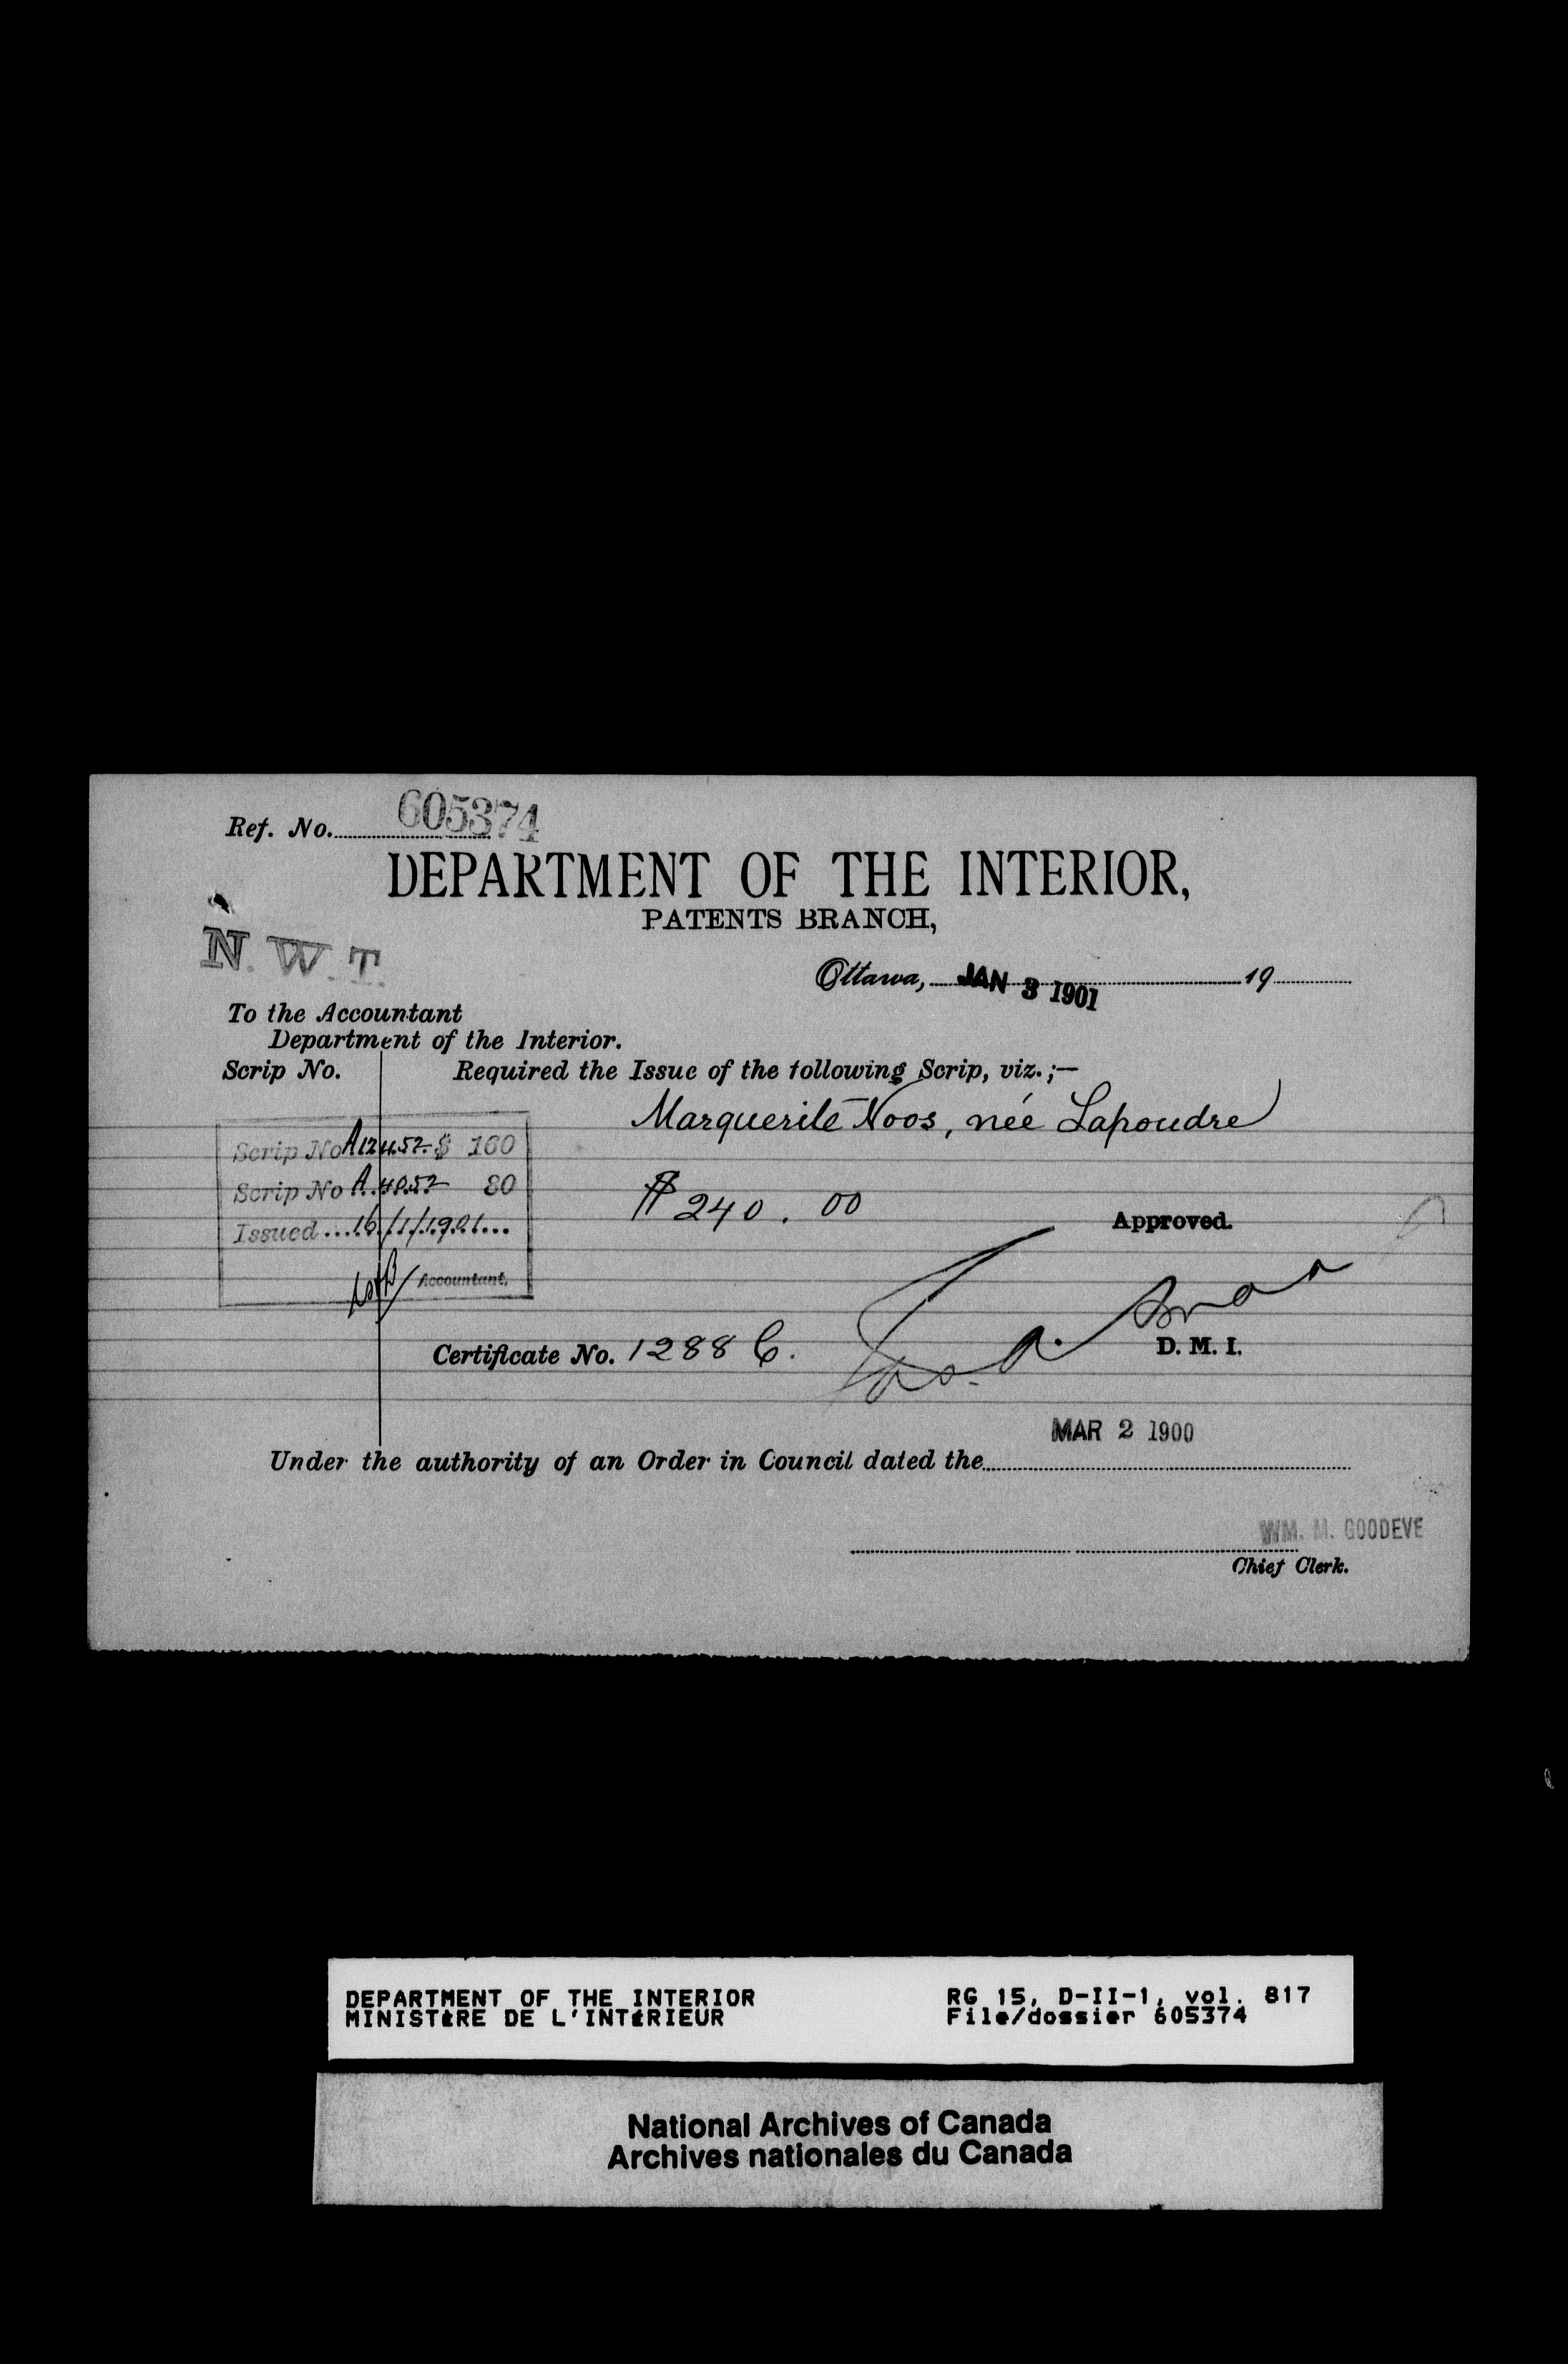 Ref. No. 605374
DEPARTMENT OF THE INTERIOR,
PATENTS BRANCH,
N. W. T.
Ottawa, JAN 3 1901 19
To the Accountant
Department of the Interior.
Scrip No. Required the Issue of the following Scrip, viz.;—
Marguerite Noos, née Lapoudre
Scrip No $ 160
Scrip No 80
$240.00
Issued 16/1/1901
Approved.
Accountant.
Certificate No. 1288 C.
Jas. A. Smart
D. M. I.
MAR 2 1900
Under the authority of an Order in Council dated the
WM. M. GOODEVE
Chief Clerk.
DEPARTMENT OF THE INTERIOR RG 15, D-II-1, vol. 817
MINISTÈRE DE L'INTÉRIEUR File/dossier 605374
National Archives of Canada
Archives nationales du Canada